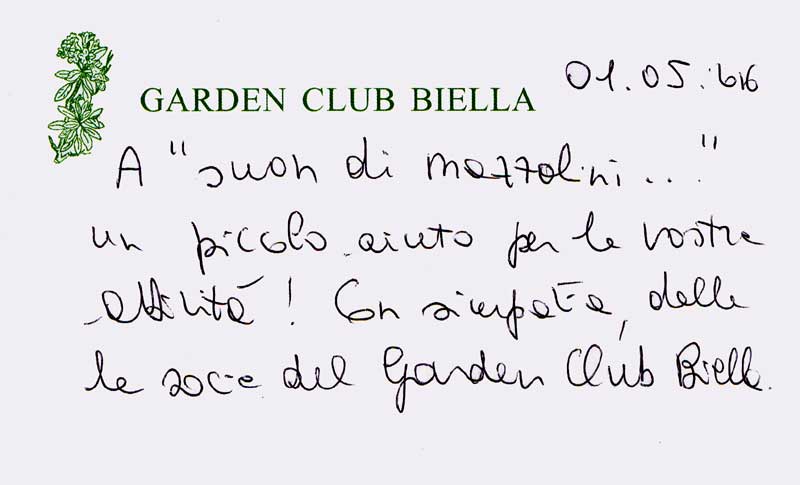 GARDEN CLUB BIELLA
01.05.
A "suon di mazzolini..."
un piccolo aiuto per le vostre
attività! Con simpatia, dalle
le socie del Garden Club Biella.